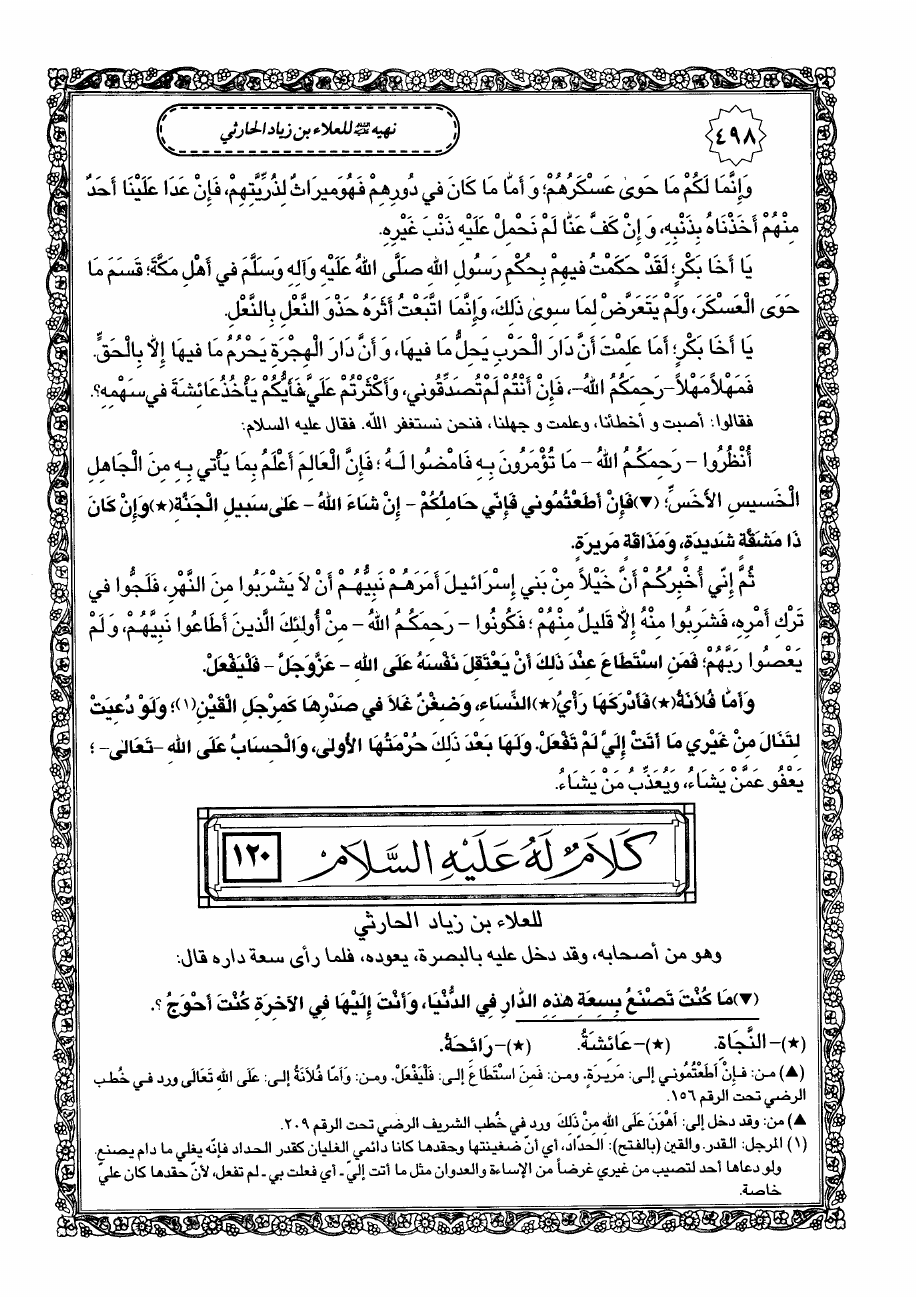 ٤٩٨
نهيه ﷺ للعلاء بن زياد الحارثي
وَإِنَّمَا لَكُمْ مَا حَوىٰ عَسْكَرُهُمْ؛ وَ أَمَّا مَا كَانَ في دُورِهِمْ فَهُوَ ميرَاثٌ لِذُرِّيَّتِهِمْ، فَإِنْ عَدَا عَلَيْنَا أَحَدٌ
مِنْهُمْ أَخَذْنَاهُ بِذَنْبِهِ، وَ إِنْ كَفَّ عَنَّا لَمْ نَحْمِلْ عَلَيْهِ ذَنْبَ غَيْرِهِ.
يَا أَخَا بَكْرٍ؛ لَقَدْ حَكَمْتُ فيهِمْ بِحُكْمِ رَسُولِ اللهِ صَلَّى اللهُ عَلَيْهِ وَآلِهِ وَسَلَّمَ في أَهْلِ مَكَّةَ؛ قَسَمَ مَا
حَوَى الْعَسْكَرَ، وَلَمْ يَتَعَرَّضْ لِمَا سِوىٰ ذَلِكَ، وَإِنَّمَا اتَّبَعْتُ أَثَرَهُ حَذْوَ النَّعْلِ بِالنَّعْلِ.
يَا أَخَا بَكْرٍ؛ أَمَا عَلِمْتَ أَنَّ دَارَ الْحَرْبِ يَحِلُّ مَا فيهَا، وَ أَنَّ دَارَ الْهِجْرَةِ يَحْرُمُ مَا فيهَا إِلَّا بِالْحَقِّ.
فَمَهْلاً مَهْلاً –رَحِمَكُمُ اللهُ–، فَإِنْ أَنْتُمْ لَمْ تُصَدِّقُوني، وَأَكْثَرْتُمْ عَلَيَّ فَأَيُّكُمْ يَأْخُذُ عَائِشَةَ في سَهْمِهِ؟.
فقالوا: أصبت و أخطأنا، وعلمت و جهلنا، فنحن نستغفر اللّه. فقال عليه السلام:
أُنْظُرُوا – رَحِمَكُمُ اللهُ – مَا تُؤْمَرُونَ بِهِ فَامْضُوا لَهُ ؛ فَإِنَّ الْعَالِمَ أَعْلَمُ بِمَا يَأْتي بِهِ مِنَ الْجَاهِلِ
الْخَسيسِ الأَخَسِّ؛ (▼) فَإِنْ أَطَعْتُمُوني فَإِنّي حَامِلُكُمْ – إِنْ شَاءَ اللهُ – عَلىٰ سَبيلِ الْجَنَّةِ(★) وَإِنْ كَانَ
ذَا مَشَقَّةٍ شَديدَةٍ، وَمَذَاقَةٍ مَريرَةٍ.
ثُمَّ إِنّي أُخْبِرُكُمْ أَنَّ خَيْلاً مِنْ بَني إِسْرَائيلَ أَمَرَهُمْ نَبِيُّهُمْ أَنْ لَا يَشْرَبُوا مِنَ النَّهْرِ، فَلَجُّوا في
تَرْكِ أَمْرِهِ، فَشَرِبُوا مِنْهُ إِلَّا قَليلٌ مِنْهُمْ ؛ فَكُونُوا – رَحِمَكُمُ اللهُ – مِنْ أُولٰئِكَ الَّذينَ أَطَاعُوا نَبِيَّهُمْ، وَ لَمْ
يَعْصُوا رَبَّهُمْ؛ فَمَنِ اسْتَطَاعَ عِنْدَ ذَلِكَ أَنْ يَعْتَقِلَ نَفْسَهُ عَلَى اللهِ – عَزَّ وَجَلَّ – فَلْيَفْعَلْ.
وَأَمَّا فُلَانَةُ(★) فَأَدْرَكَهَا رَأْيُ(★) النِّسَاءِ، وَضِغْنٌ غَلَا في صَدْرِهَا كَمِرْجَلِ الْقَيْنِ(١)؛ وَلَوْ دُعِيَتْ
لِتَنَالَ مِنْ غَيْري مَا أَتَتْ إِلَيَّ لَمْ تَفْعَلْ. وَلَهَا بَعْدَ ذَلِكَ حُرْمَتُهَا الأُولىٰ، وَالْحِسَابُ عَلَى اللهِ –تَعَالىٰ– ؛
يَعْفُو عَمَّنْ يَشَاءُ، وَيُعَذِّبُ مَنْ يَشَاءُ.
كَلَامٌ لَهُ عَلَيْهِ السَّلَامُ
١٢٠
للعلاء بن زياد الحارثي
وهو من أصحابه، وقد دخل عليه بالبصرة، يعوده، فلما رأى سعة داره قال:
(▼) مَا كُنْتَ تَصْنَعُ بِسِعَةِ هٰذِهِ الدَّارِ فِي الدُّنْيَا، وَأَنْتَ إِلَيْهَا فِي الآخِرَةِ كُنْتَ أَحْوَجُ ؟.
(★)– النَّجَاةِ. (★)– عَائِشَةُ. (★)– رَائِحَةُ.
(▲) من: فَإِنْ أَطَعْتُمُوني إلى: مَريرَةٍ. ومن: فَمَنِ اسْتَطَاعَ إلى: فَلْيَفْعَلْ. ومن: وَأَمَّا فُلَانَةُ إلى: عَلَى اللهِ تَعَالَى ورد في خُطب
الرضي تحت الرقم ١٥٦.
▲) من: وقد دخل إلى: أَهْوَنَ عَلَى اللهِ مِنْ ذَلِكَ ورد في خُطب الشريف الرضي تحت الرقم ٢٠٩.
(١) المرجل: القدر. والقين (بالفتح): الحدّاد، أي أنّ ضغينتها وحقدها كانا دائمي الغليان كقدر الحداد فإنّه يغلي ما دام يصنع.
ولو دعاها أحد لتصيب من غيري غرضاً من الإساءة والعدوان مثل ما أتت إليّ ـ أي فعلت بي ـ لم تفعل، لأنّ حقدها كان عليّ
خاصة.